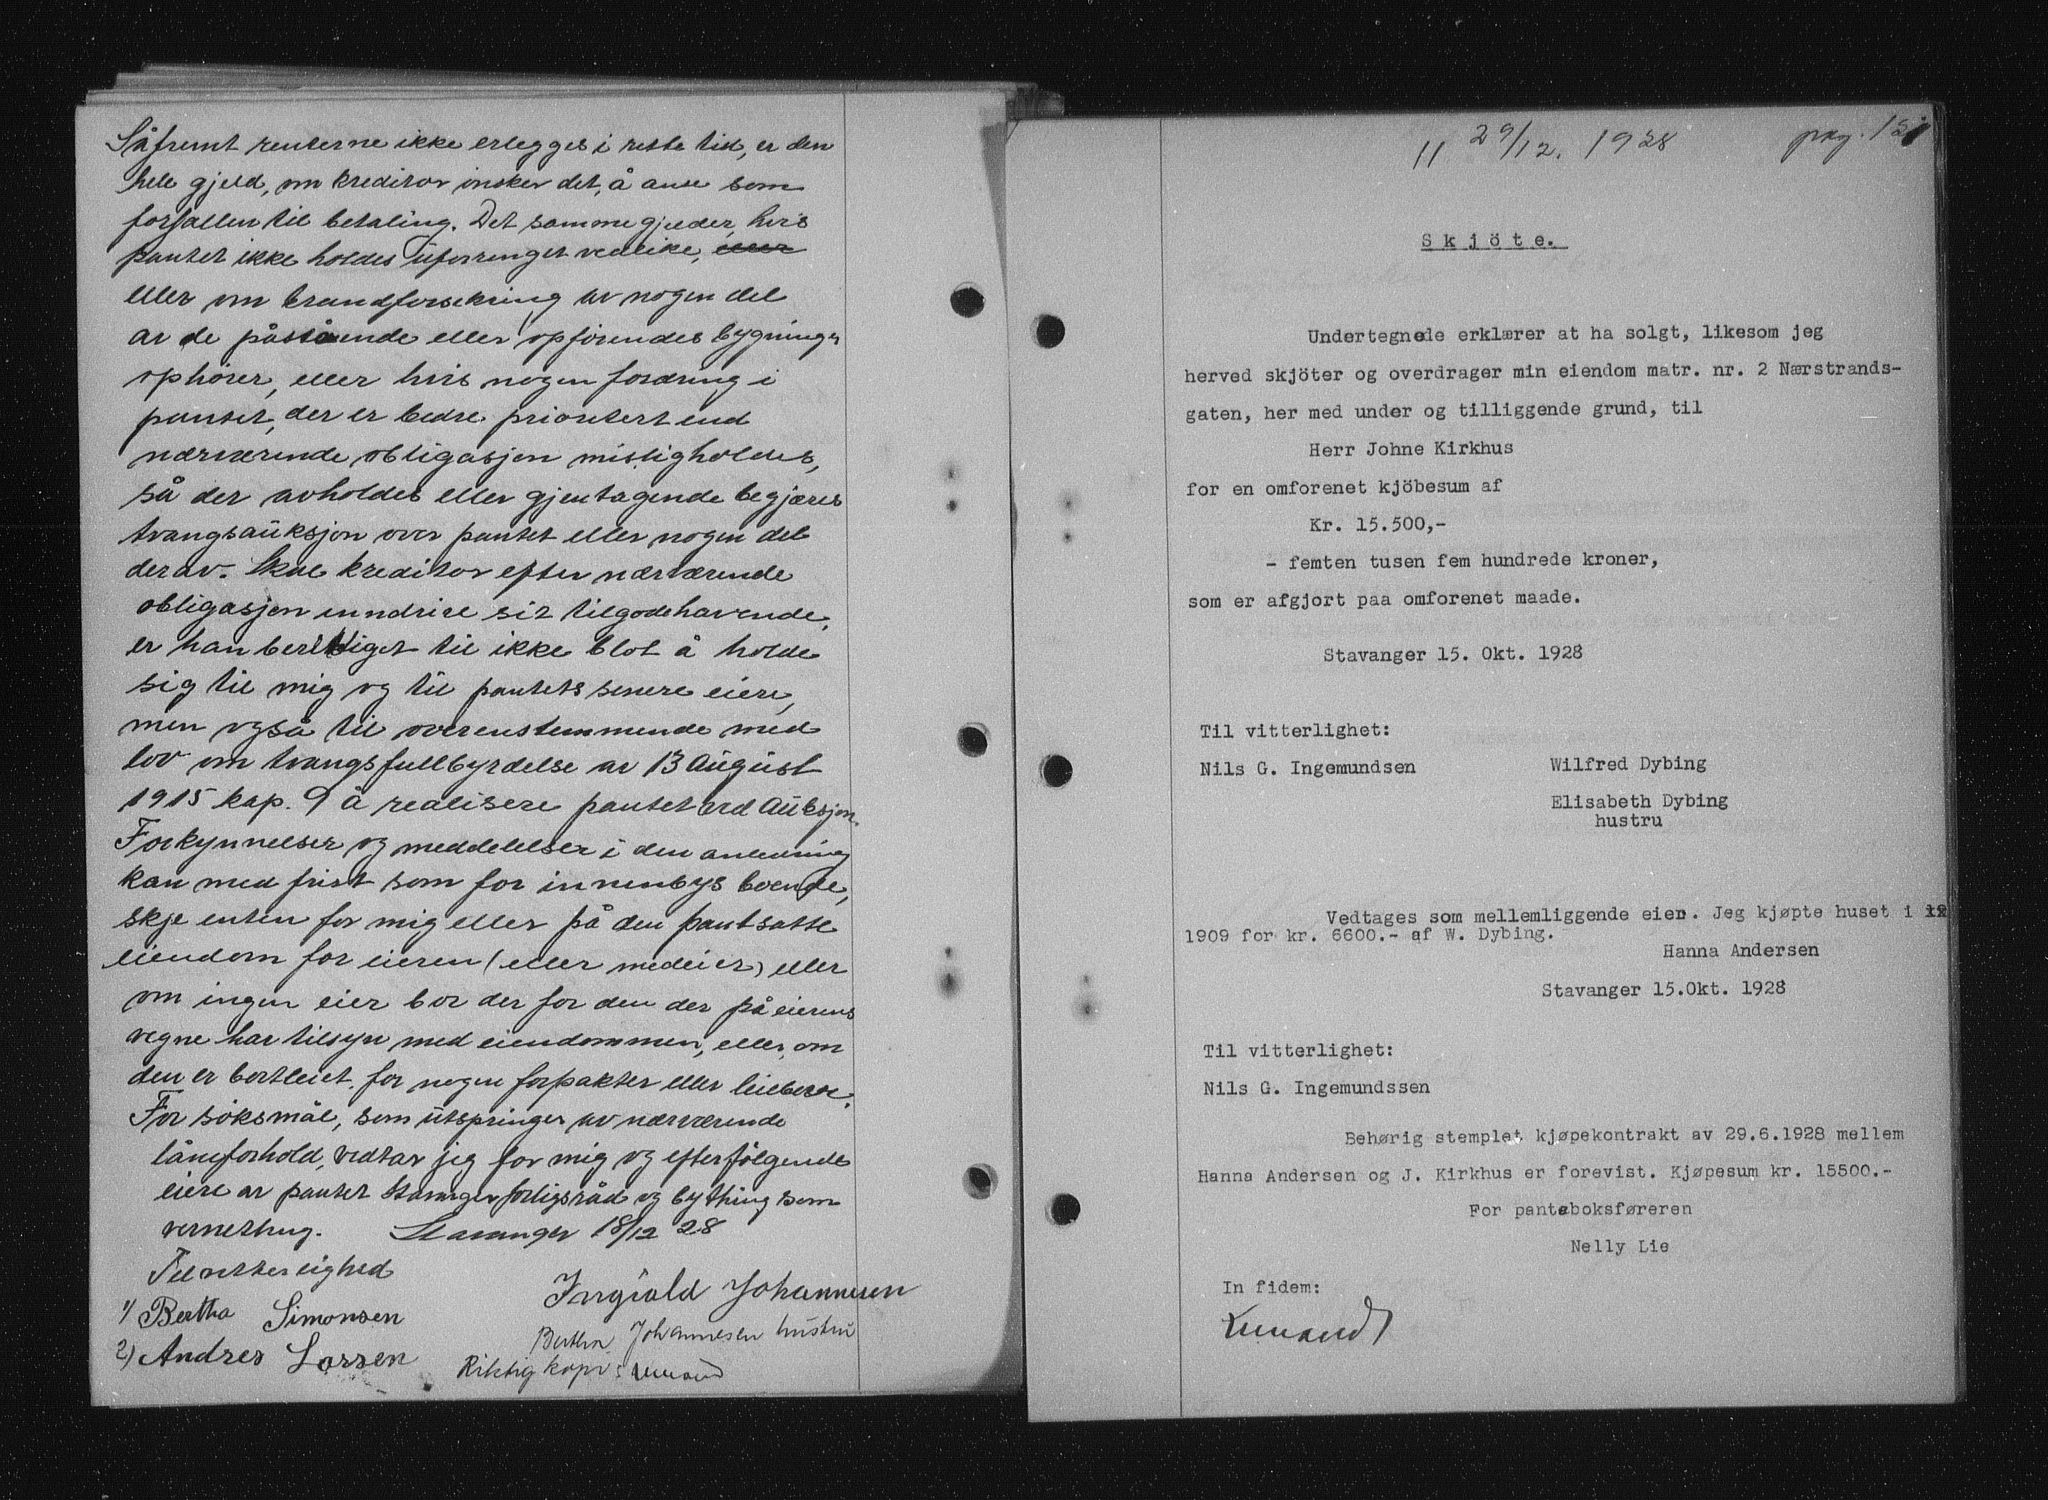 Såfremt renterne ikke erlegges i rette tid, er den
hele gjeld, om kreditor ønsker det, å anse som
forfallen til betaling. Det samme gjelder, hvis
pantet ikke holdes uforringet vedlike, eller
eller om brandforsikring av nogen del
av de påstående eller opførendes bygninger
ophører, eller hvis nogen fordring i
pantet, der er bedre prioritert end
nærværende obligasjon misligholdes,
så der avholdes eller gjentagende begjæres
tvangsauksjon over pantet eller nogen del
derav. Skal kreditor efter nærværende
obligasjon inndrive sit tilgodehavende,
er han berettiget til ikke blot å holde
sig til mig og til pantets senere eiere,
men også til overenstemmende med
lov om tvangsfullbyrdelse av 13 August
1915 kap. 9 å realisere pantet ved Auksjon.
Forkynnelser og meddelelser i den anledning
kan med frist som for innenbys boende,
skje enten for mig eller på den pantsatte
eiendom for eieren (eller medeier) eller
om ingen eier bor der for den der på eierens
vegne har tilsyn med eiendommen, eller om
den er bortleiet for nogen forpakter eller leieboer.
For søksmål, som utspringer av nærværende
låneforhold, vedtar jeg for mig og efterfølgende
eiere av pantet Stavanger forligsråd og bything som
vernething. Stavanger 18/12 28
Til vitterlighed
1) Bertha Simonsen
Ingvald Johannesen
2) Andres Larsen
Bertha Johannesen hustru
Riktig kopi:
11 29/12. 1928 pag. 121
Skjöte.
Undertegnede erklærer at ha solgt, likesom jeg
herved skjöter og overdrager min eiendom matr. nr. 2 Nærstrands-
gaten, her med under og tilliggende grund, til
Herr Johne Kirkhus
for en omforenet kjöbesum af
Kr. 15.500,-
- femten tusen fem hundrede kroner,
som er afgjort paa omforenet maade.
Stavanger 15. Okt. 1928
Til vitterlighet:
Nils G. Ingemundsen Wilfred Dybing
Elisabeth Dybing
hustru
Vedtages som mellemliggende eier. Jeg kjøpte huset i
1909 for kr. 6600.- af W. Dybing.
Hanna Andersen
Stavanger 15.Okt. 1928
Til vitterlighet:
Nils G. Ingemundssen
Behørig stemplet kjøpekontrakt av 29.6.1928 mellem
Hanna Andersen og J. Kirkhus er forevist. Kjøpesum kr. 15500.-
For panteboksføreren
Nelly Lie
In fidem: